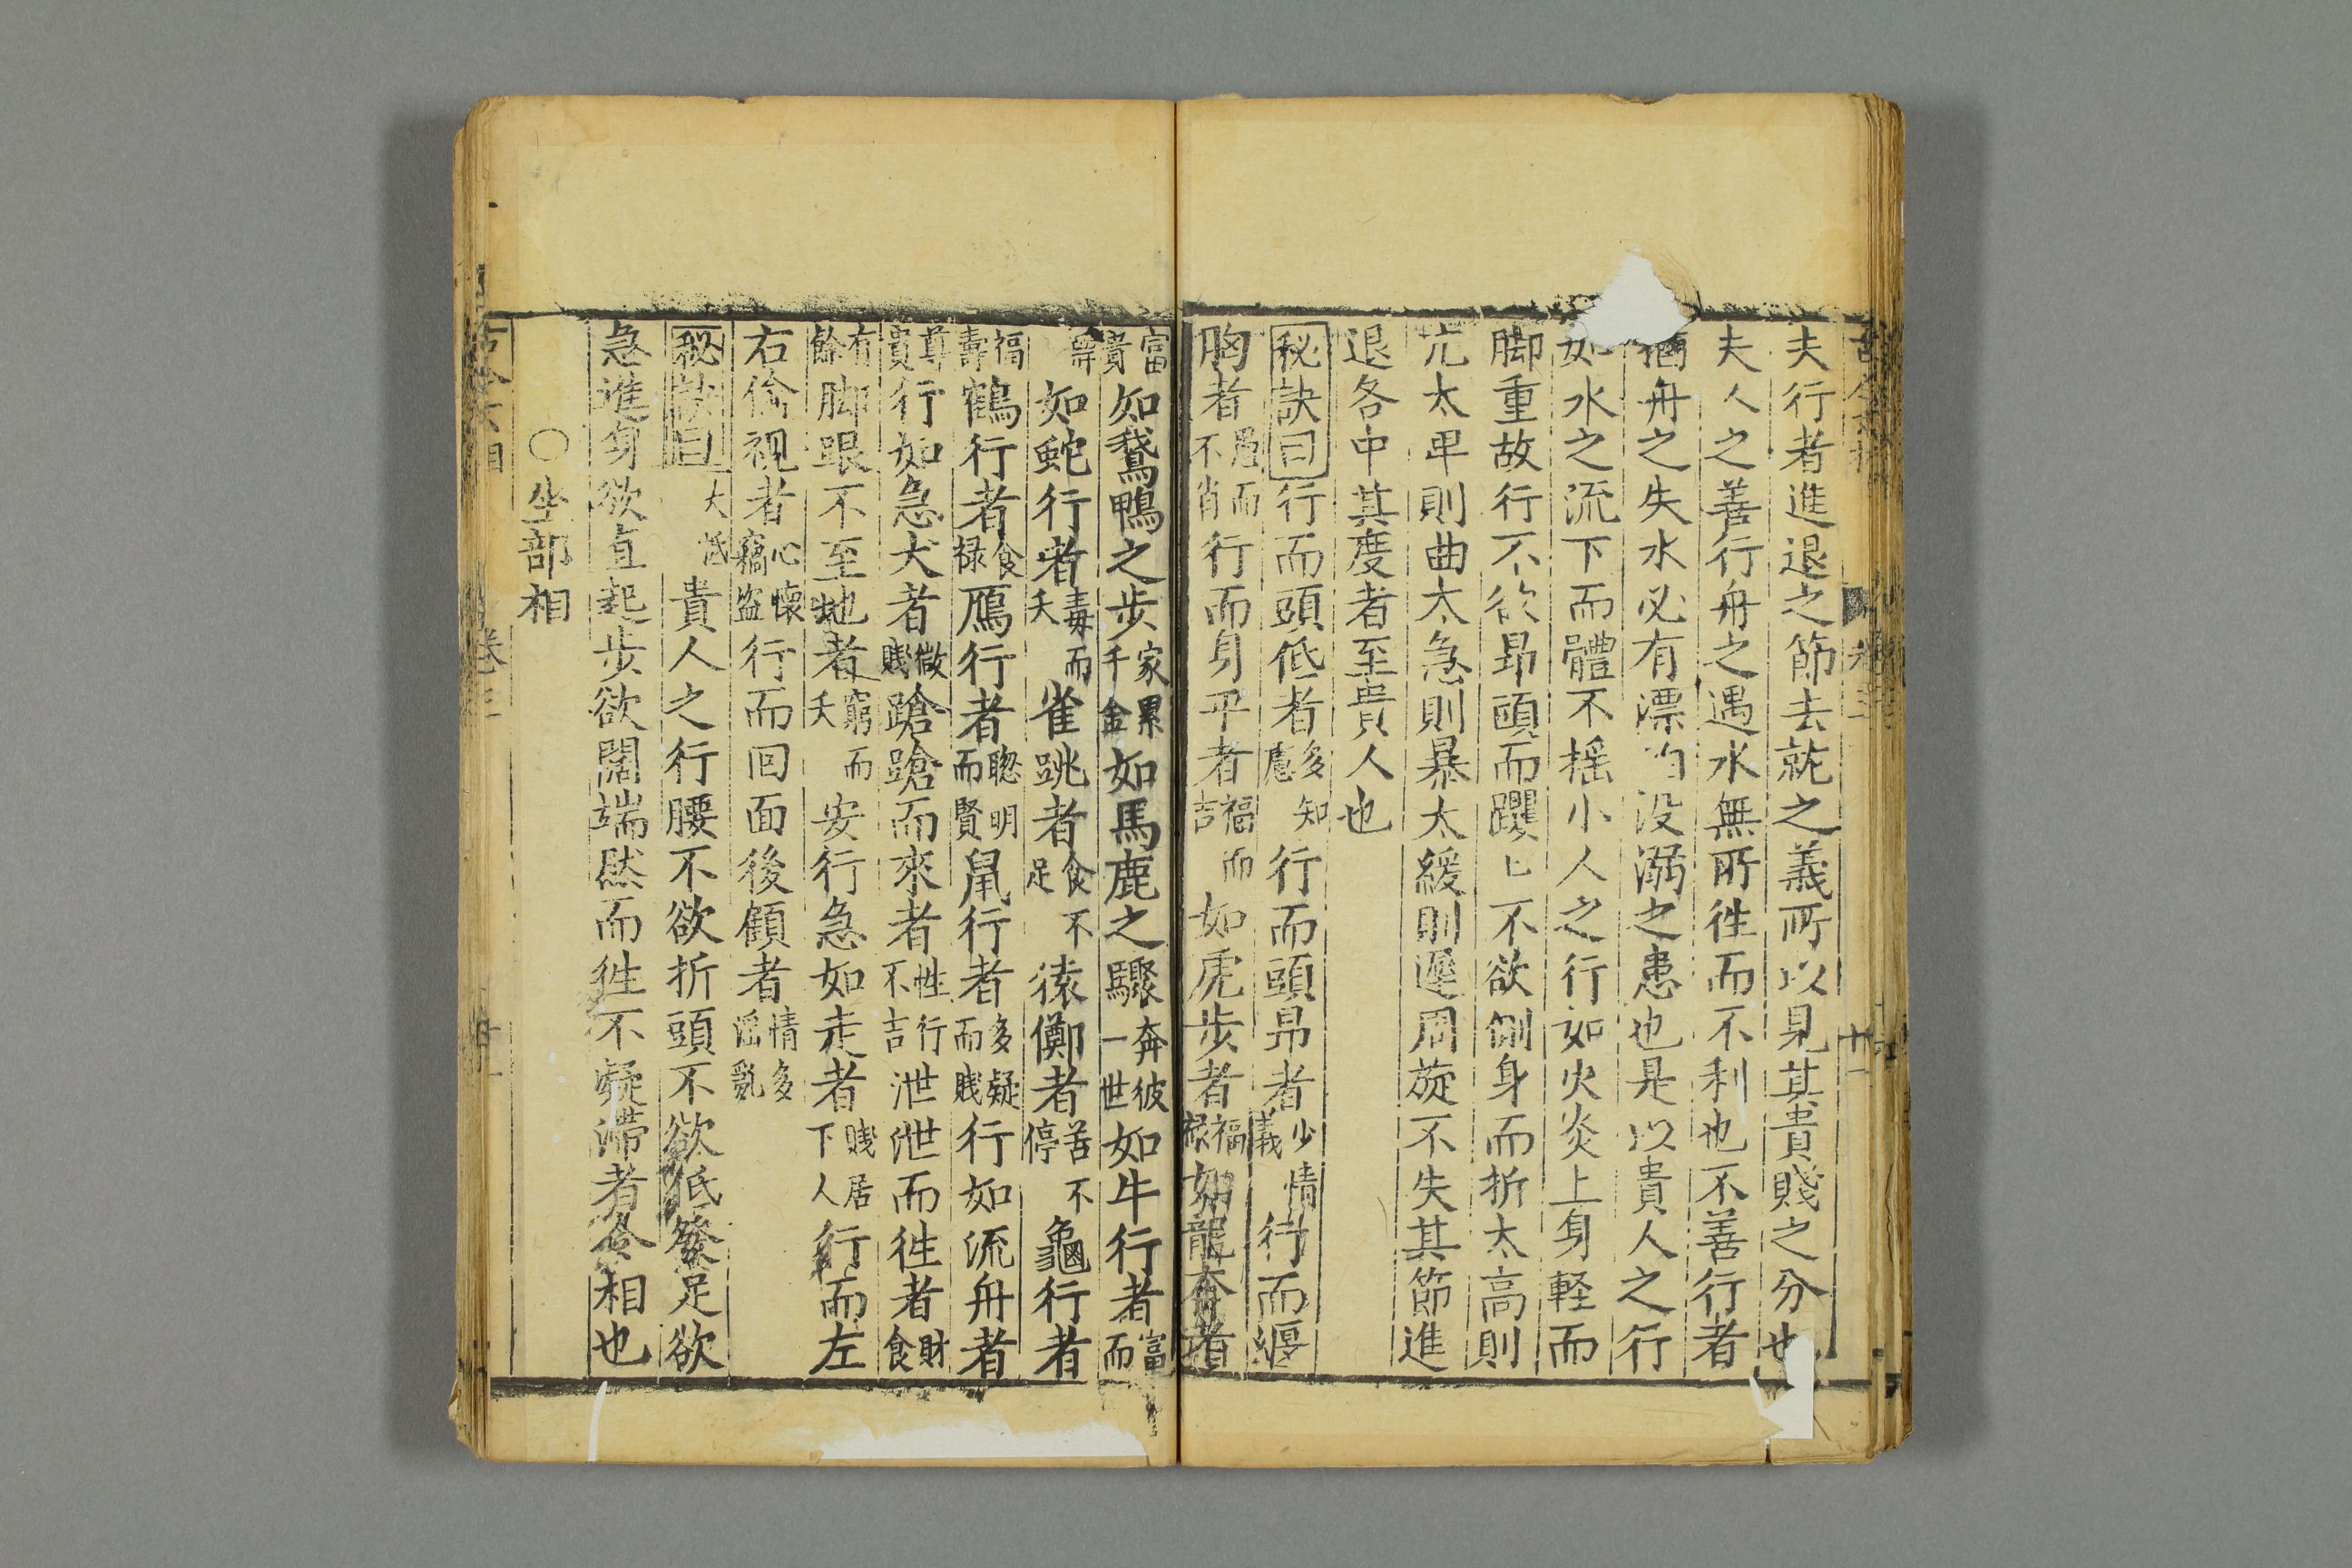 夫行者進退之節去就之義所以見其貴賤之分也
夫人之善行舟之遇水無所徃而不利也不善行者
猶舟之失水必有漂泊没溺之患也是以貴人之行
如水之流下而體不揺小人之行如火炎上身軽而
脚重故行不欲昻頭而躩匕不欲側身而折太高則
亢太卑則曲太急則暴太緩則遲周旋不失其節進
退各中其度者至貴人也
秘訣曰行而頭低者多知慮行而頭昻者少情義行而偃
胸者愚而不肖行而身平者福而吉如虎步者福禄如龍奔者
富貴如鵞鴨之步家累千金如馬鹿之驟奔彼一世如牛行者富而
壽如蛇行者毒而夭雀跳者食不足猿𨅖者苦不停龜行者
福壽鶴行者食禄鴈行者聰明而賢鼠行者多疑而賤行如流舟者
尊貴行如急犬者微賤蹌蹌而來者性行不吉泄泄而徃者財食
有餘脚跟不至地者窮而夭安行急如走者賤居下人行而左
右偷視者心懷竊盗行而回面後顧者情多滛亂
秘訣曰大低貴人之行腰不欲折頭不欲低發足欲
急進身欲直起步欲闊端然而徃不凝滯者全相也
○坐部相